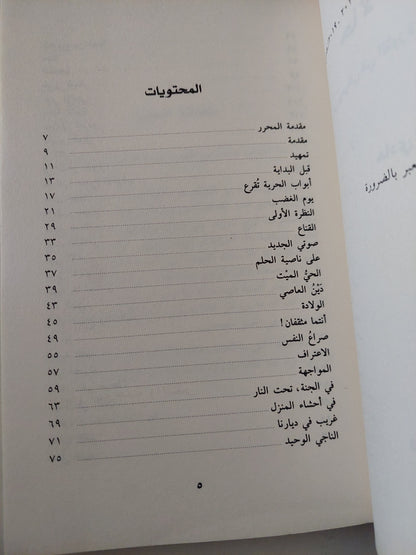 المحتويات
مقدمة المحرر ٧
مقدمة ٩
تمهيد ١١
قبل البداية ١٣
أبواب الحرية تُقرع ١٧
يوم الغضب ٢١
النظرة الأولى ٢٩
القناع ٣٣
صوتي الجديد ٣٥
على ناصية الحلم ٣٧
الحيُّ الميّت ٣٩
دَيْنُ العاصي ٤٣
الولادة ٤٥
أنتما مثقفان! ٤٩
صراعُ النفس ٥٥
الاعتراف ٥٧
المواجهة ٥٩
في الجنة، تحت النار ٦٣
في أحشاء المنزل ٦٩
غريب في ديارنا ٧١
الناجي الوحيد ٧٥
٥
بالضرورة